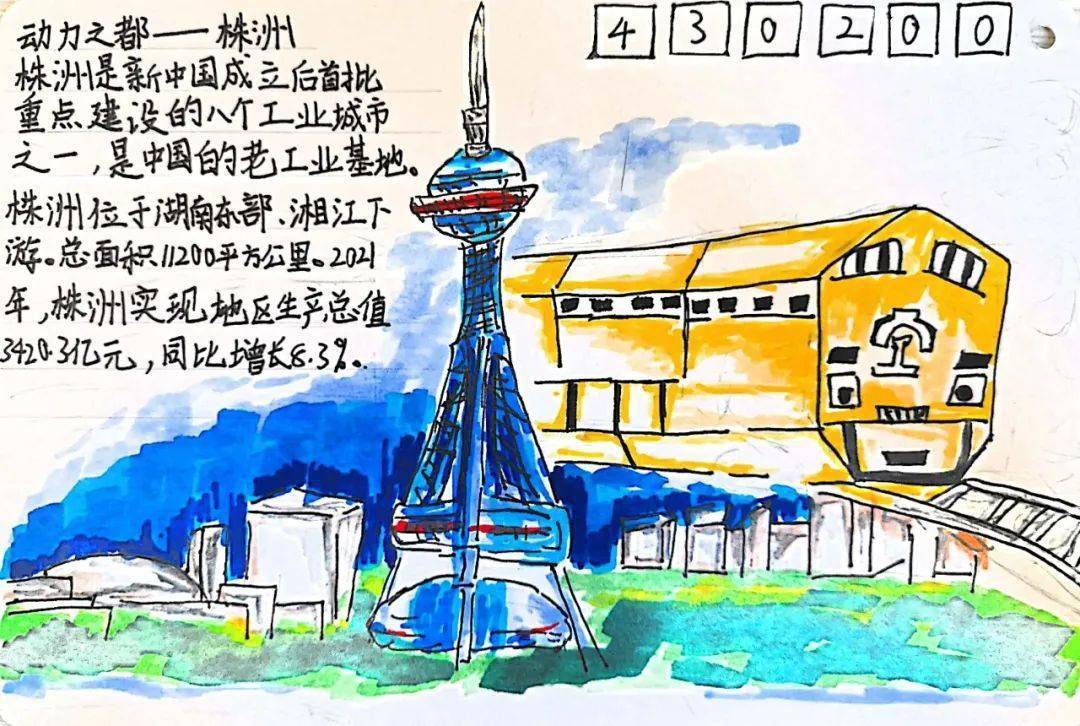 动力之都——株洲
430200
株洲是新中国成立后首批
重点建设的八个工业城市
之一,是中国的老工业基地。
株洲位于湖南东部、湘江下
游。总面积11200平方公里。2021
年,株洲实现地区生产总值
3420.3亿元,同比增长8.3%。